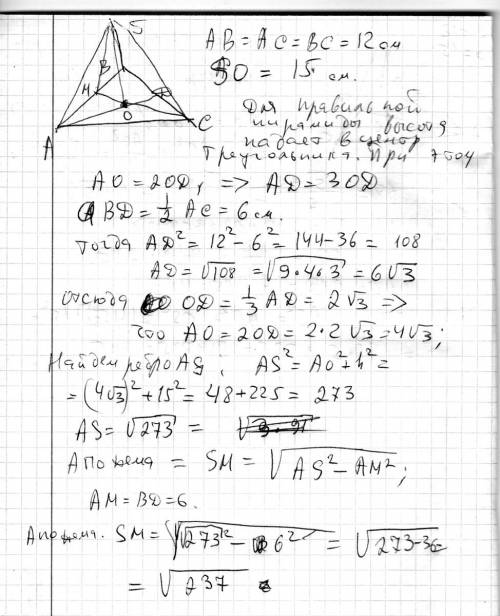 S
B
M
D
O
A
C
AB = AC = BC = 12 см
SO = 15 см.
Для правильной
пирамиды высота
падает в центр
треугольника. При этом
AO = 2OD, => AD = 3OD
BD = 1/2 AC = 6 см.
тогда AD² = 12² - 6² = 144 - 36 = 108
AD = √108 = √9·4·3 = 6√3
отсюда OD = 1/3 AD = 2√3 =>
что AO = 2OD = 2·2√3 = 4√3;
Найдем ребро AS; AS² = AO² + h² =
= (4√3)² + 15² = 48 + 225 = 273
AS = √273 =
Апофема = SM = √AS² - AM²;
AM = BD = 6.
Апофема. SM = √√273² - 6² = √273-36 =
= √237